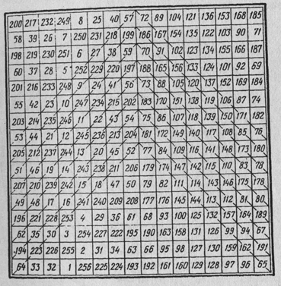 200 217 232 249 8 25 40 57 72 89 104 121 136 153 168 185
58 39 26 7 250 231 218 199 186 167 154 135 122 103 90 71
198 219 230 251 6 27 38 59 70 91 102 123 134 155 166 187
60 37 28 5 252 229 220 197 188 165 156 133 124 101 92 69
201 216 233 248 9 24 41 56 73 88 105 120 137 152 169 184
55 42 23 10 247 234 215 202 183 170 151 138 119 106 87 74
203 214 235 246 11 22 43 54 75 86 107 118 139 150 171 182
53 44 21 12 245 236 213 204 181 172 149 140 117 108 85 76
205 212 237 244 13 20 45 52 77 84 109 116 141 148 173 180
51 46 19 14 243 238 211 206 179 174 147 142 115 110 83 78
207 210 239 242 15 18 47 50 79 82 111 114 143 146 175 178
49 48 17 16 241 240 209 208 177 176 145 144 113 112 81 80
196 221 228 253 4 29 36 61 68 93 100 125 132 157 164 189
62 35 30 3 254 227 222 195 190 163 158 131 126 99 94 67
194 223 226 255 2 31 34 63 66 95 98 127 130 159 162 191
64 33 32 1 256 225 224 193 192 161 160 129 128 97 96 65